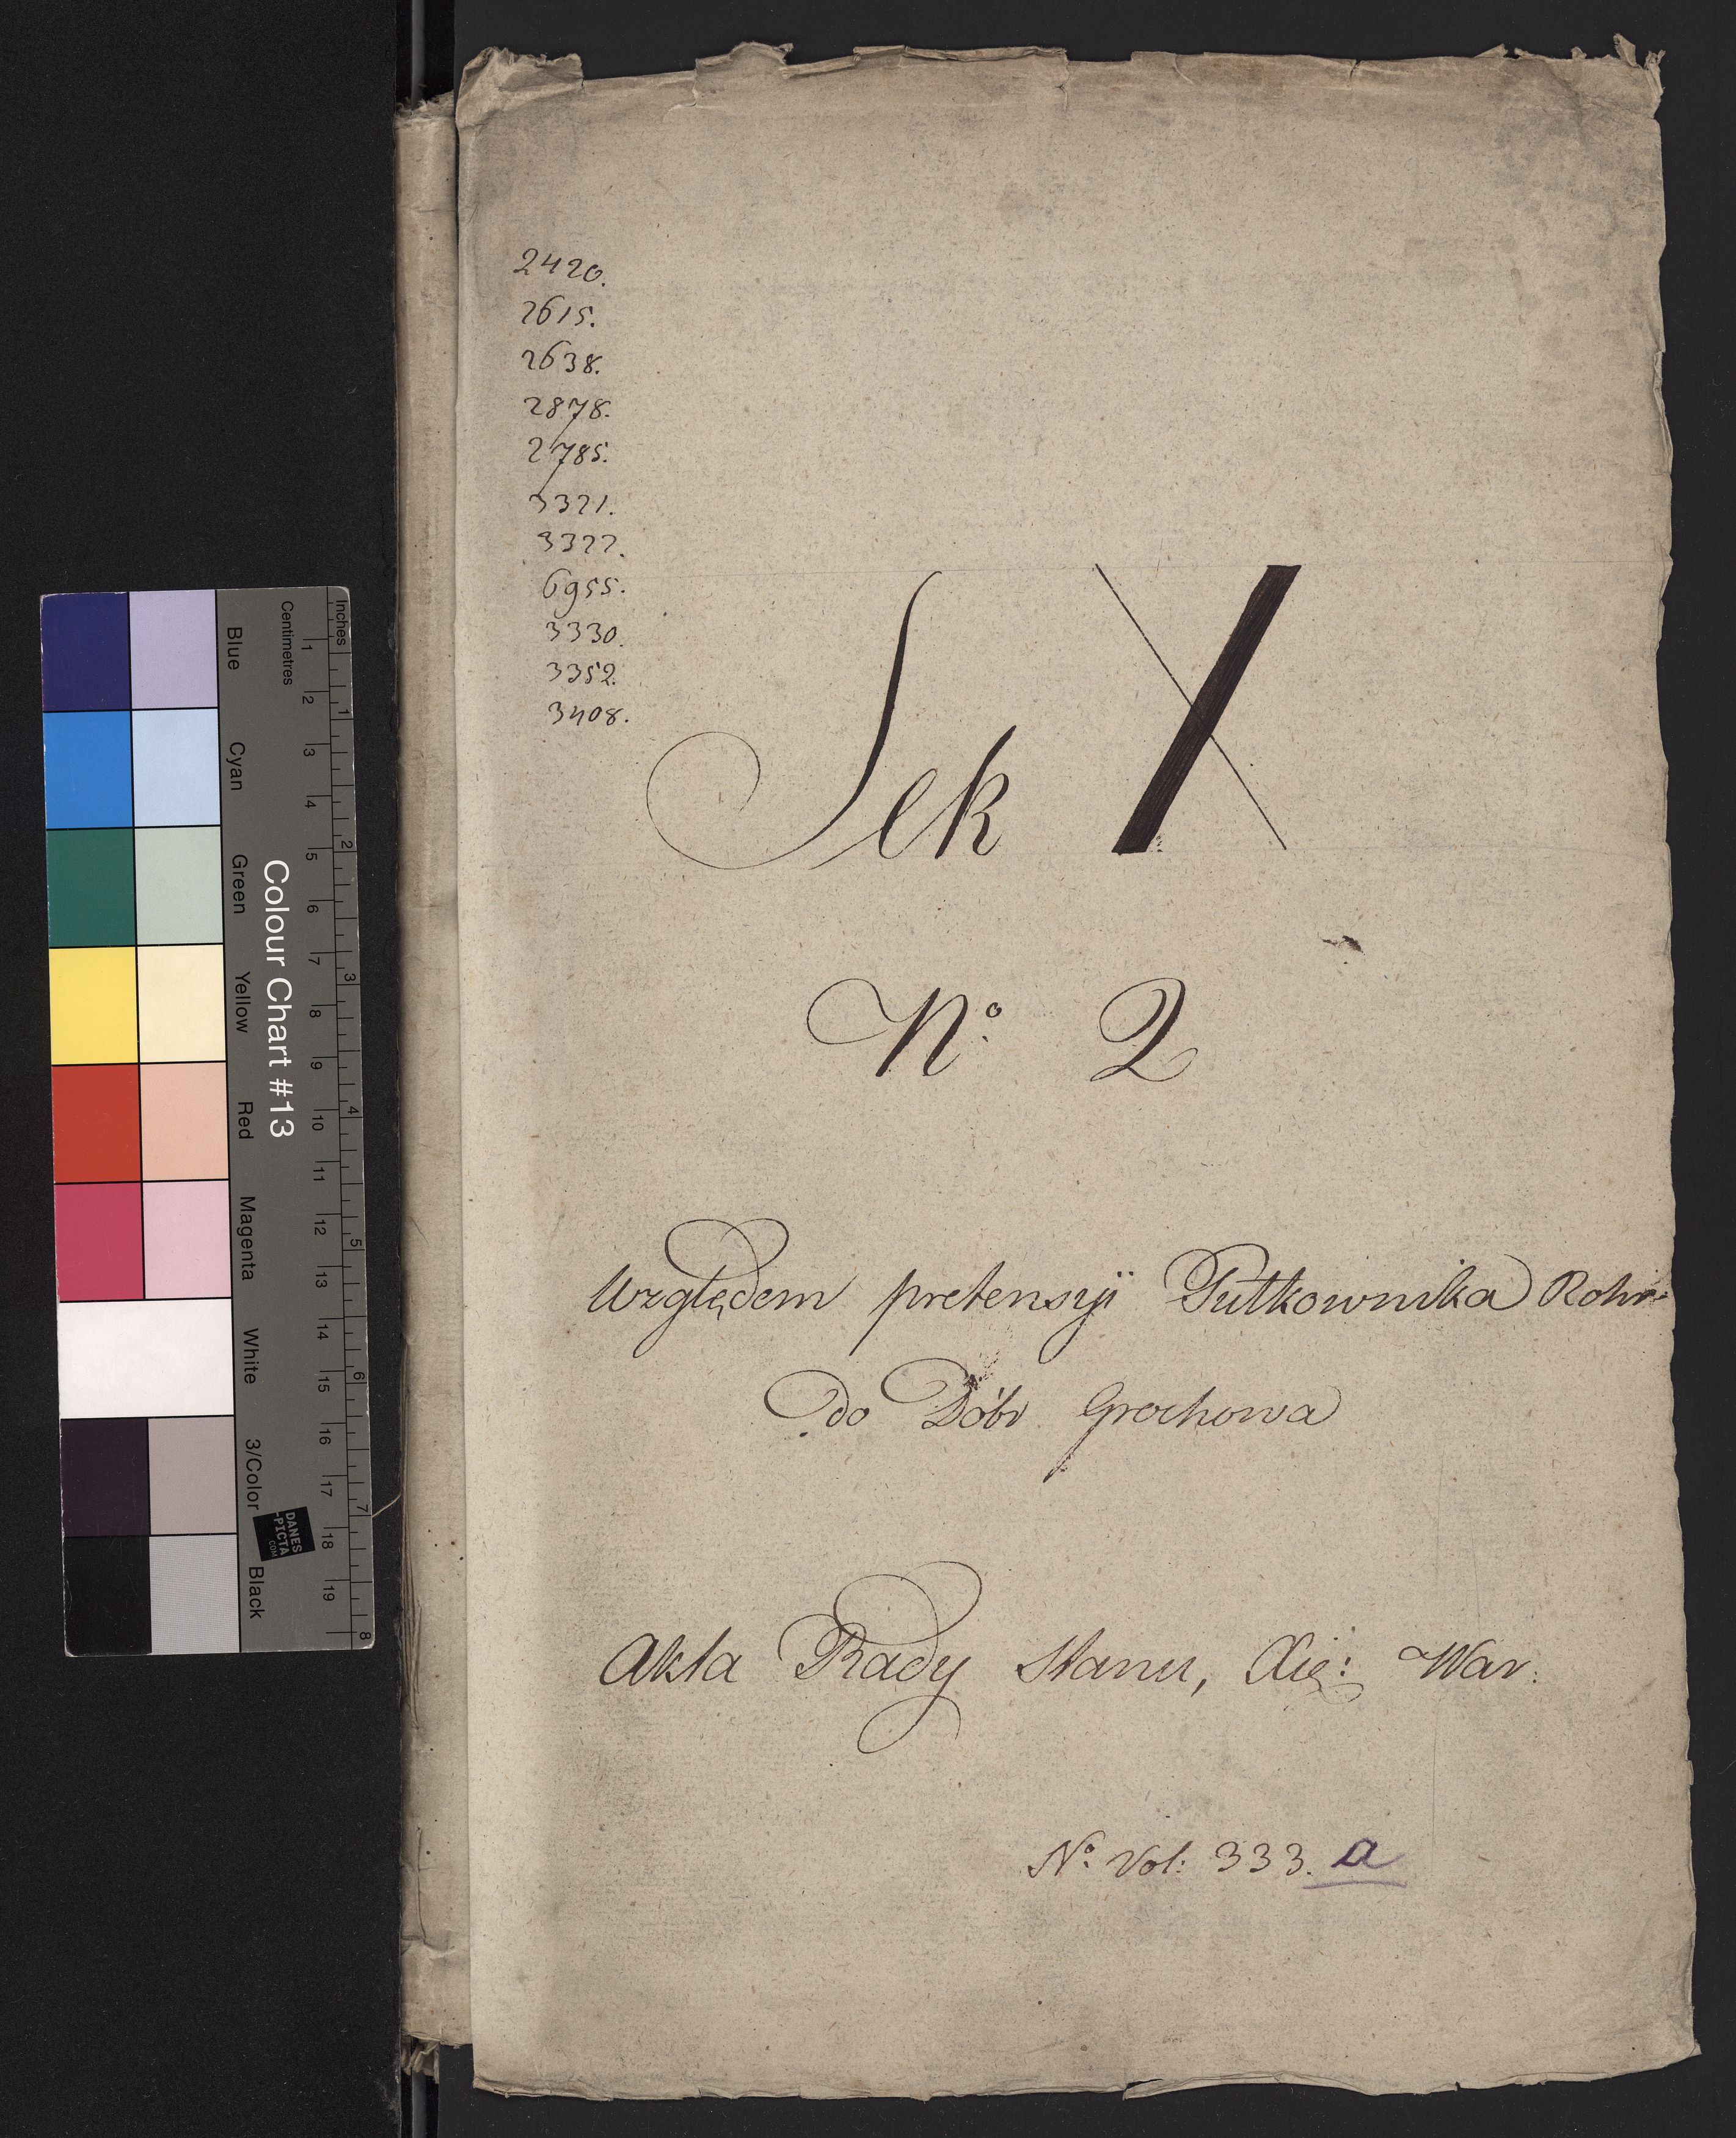 2420.
2615.
2638.
2878.
2785.
3321.
3322.
6955.
3330.
3352.
3408.
Sek X
No: 2
Względem pretensyi Pułkownika Rohr
do Dóbr Grochowa
Akta Rady Stanu, Xię: War:
No: Vol: 333. a
Colour Chart #13
Blue Cyan Green Yellow Red Magenta White 3/Color Black
Centimetres 1 2 3 4 5 6 7 8 9 10 11 12 13 14 15 16 17 18 19
Inches 1 2 3 4 5 6 7 8
DANES
-PICTA
.COM